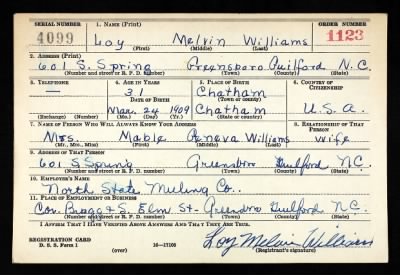 SERIAL NUMBER 1. NAME (Print) ORDER NUMBER
4099 Loy Melvin Williams 1123
(First) (Middle) (Last)
2. ADDRESS (Print)
601 S. Spring Greensboro Guilford N.C.
(Number and street or R. F. D. number) (Town) (County) (State)
3. TELEPHONE 4. AGE IN YEARS 5. PLACE OF BIRTH 6. COUNTRY OF CITIZENSHIP
— 31 Chatham
DATE OF BIRTH (Town or county)
Mar. 24 1909 Chatham U.S.A.
(Exchange) (Number) (Mo.) (Day) (Yr.) (State or country)
7. NAME OF PERSON WHO WILL ALWAYS KNOW YOUR ADDRESS 8. RELATIONSHIP OF THAT PERSON
Mrs. Mable Geneva Williams Wife
(Mr., Mrs., Miss) (First) (Middle) (Last)
9. ADDRESS OF THAT PERSON
601 S. Spring Greensboro Guilford N.C.
(Number and street or R. F. D. number) (Town) (County) (State)
10. EMPLOYER'S NAME
North State Milling Co.
11. PLACE OF EMPLOYMENT OR BUSINESS
Cor. Bragg & S. Elm St. Greensboro Guilford N.C.
(Number and street or R. F. D. number) (Town) (County) (State)
I AFFIRM THAT I HAVE VERIFIED ABOVE ANSWERS AND THAT THEY ARE TRUE.
REGISTRATION CARD Loy Melvin Williams
D. S. S. Form 1 (over) 16—17105 (Registrant's signature)